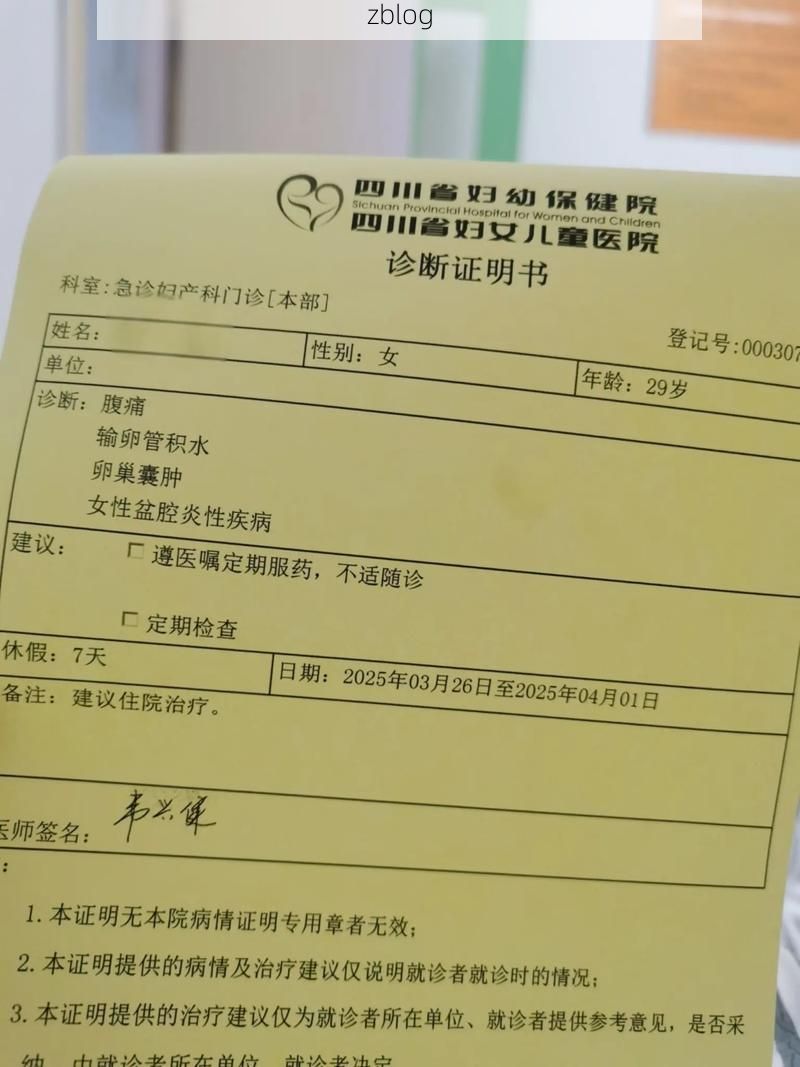 zblog
四川省妇幼保健院
Sichuan Provincial Hospital for Women and Children
四川省妇女儿童医院
诊断证明书
科室:急诊妇产科门诊[本部]
登记号:000307
姓名:
性别: 女
年龄: 29岁
单位:
诊断: 腹痛
输卵管积水
卵巢囊肿
女性盆腔炎性疾病
建议:
遵医嘱定期服药，不适随诊
定期检查
休假: 7天
日期: 2025年03月26日至2025年04月01日
备注: 建议住院治疗。
医师签名:
:
1. 本证明无本院病情证明专用章者无效;
2. 本证明提供的病情及治疗建议仅说明就诊者就诊时的情况;
3. 本证明提供的治疗建议仅为就诊者所在单位、就诊者提供参考意见，是否采
纳，由就诊者所在单位、就诊者决定